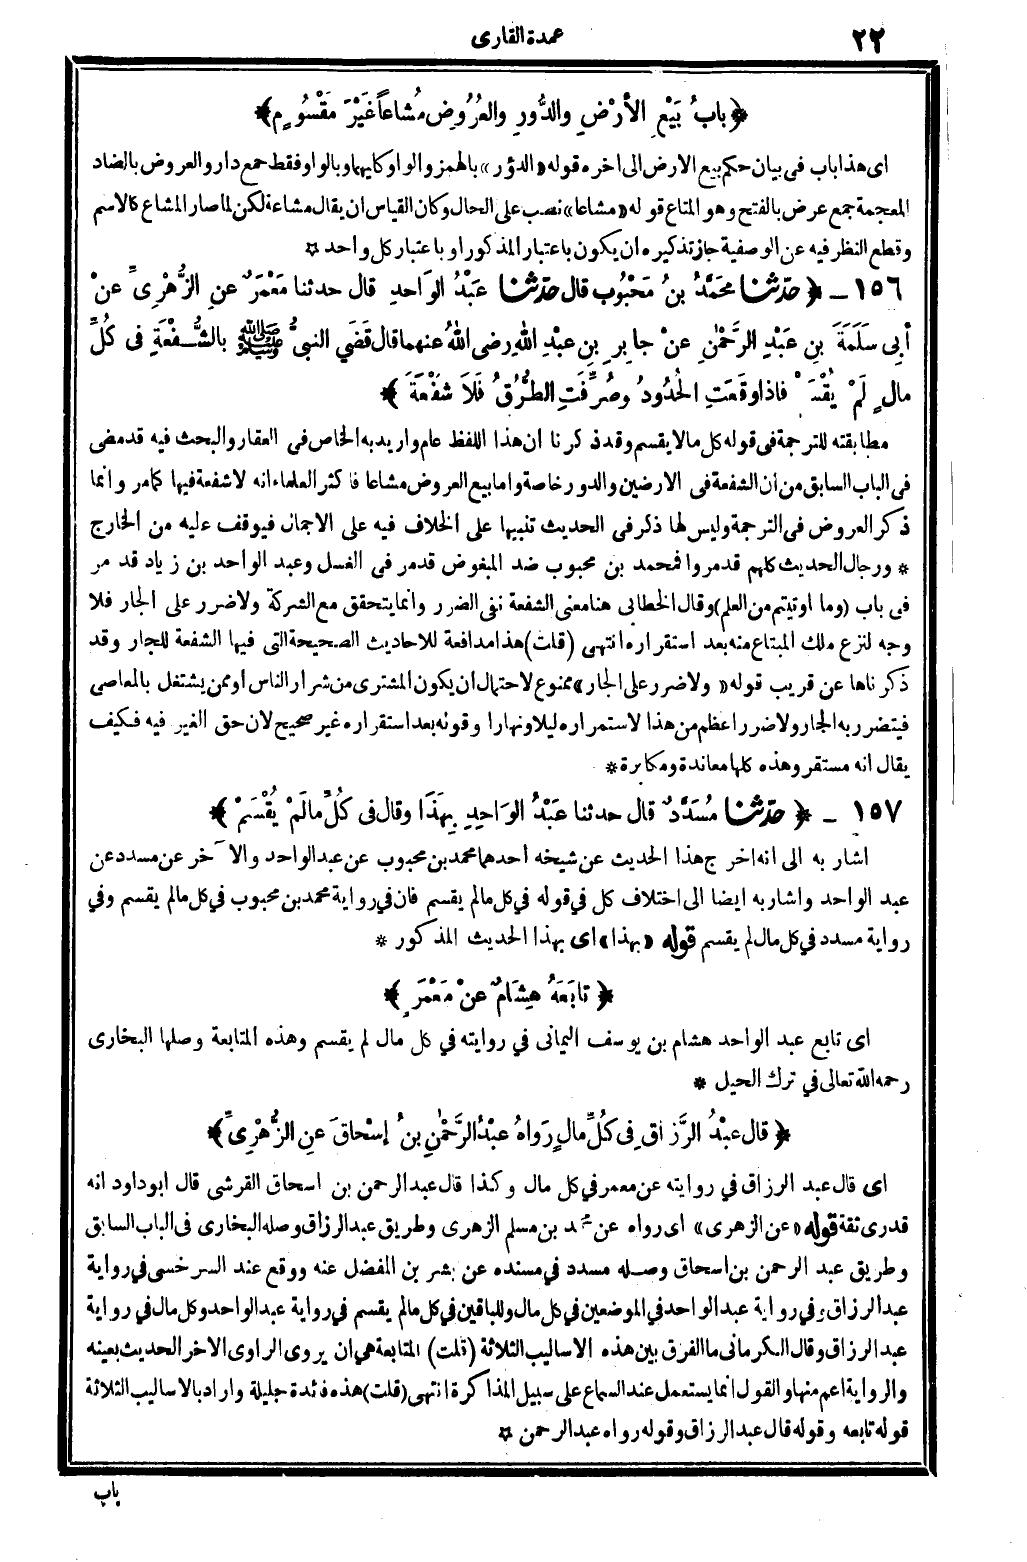 ٢٢
عمدة القارى
﴿ بابُ بَيْعِ الأَرْضِ والدُّورِ والعُرُوضِ مُشاعاً غَيْرَ مَقْسُومٍ ﴾
اى هذا باب فى بيان حكم بيع الارض الى اخره قوله «الدؤر» بالهمز والواو كليهما وبالواو فقط جمع دار والعروض بالضاد
المعجمة جمع عرض بالفتح وهو المتاع قوله «مشاعا» نصب على الحال وكان القياس ان يقال مشاعة لكن لما صار المشاع كالاسم
وقطع النظر فيه عن الوصفية جاز تذكيره ان يكون باعتبار المذكور او باعتبار كل واحد ٭
١٥٦ ـ ﴿ حدّثنا محَمَّدُ بنُ مَحْبُوب قال حدّثنا عَبْدُ الوَاحدِ قال حدثنا مَعْمَرٌ عنِ الزُّهْرِىِّ عنْ
أبِى سَلَمَةَ بنِ عَبْدِ الرَّحْمٰنِ عنْ جابِرِ بنِ عبْدِ اللهِ رضى اللهُ عنهما قال قَضَي النبىُّ ﷺ بالشُّفْعَةِ فى كُلِّ
مالٍ لَمْ يُقْسَمْ فاذا وقَعَتِ الحُدُودُ وصُرِّفَتِ الطُّرُقُ فَلاَ شُفْعَةَ ﴾
مطابقته للترجمة فى قوله كل مالا يقسم وقد ذكرنا ان هذا اللفظ عام واريد به الخاص فى العقار والبحث فيه قد مضى
فى الباب السابق من أن الشفعة فى الارضين والدور خاصة واما بيع العروض مشاعا فاكثر العلماء انه لا شفعة فيها كما مر وانما
ذكر العروض فى الترجمة وليس لها ذكر فى الحديث تنبيها على الخلاف فيه على الاجمال فيوقف عليه من الخارج
٭ ورجال الحديث كلهم قد مروا فمحمد بن محبوب ضد المبغوض قدمر فى الغسل وعبد الواحد بن زياد قد مر
فى باب (وما اوتيتم من العلم) وقال الخطابى هنا معنى الشفعة نفى الضرر وانما يتحقق مع الشركة ولا ضرر على الجار فلا
وجه لنزع ملك المبتاع منه بعد استقراره انتهى (قلت) هذا مدافعة للاحاديث الصحيحة التى فيها الشفعة للجار وقد
ذكرناها عن قريب قوله «ولا ضرر على الجار» ممنوع لاحتمال ان يكون المشترى من شرار الناس او ممن يشتغل بالمعاصى
فيتضرر به الجار ولا ضرر اعظم من هذا لاستمراره ليلا ونهارا وقوله بعد استقراره غير صحيح لان حق الغير فيه فكيف
يقال انه مستقر وهذه كلها معاندة ومكابرة ٭
١٥٧ ـ ﴿ حدّثنا مُسَدَّدٌ قال حدثنا عَبْدُ الوَاحِدِ بِهَذَا وقال فى كُلِّ مالَمْ يُقْسَمْ ﴾
اشار به الى انه اخرج هذا الحديث عن شيخه احدهما محمد بن محبوب عن عبد الواحد والآخر عن مسدد عن
عبد الواحد واشار به ايضا الى اختلاف كل في قوله في كل مالم يقسم فان في رواية محمد بن محبوب في كل مالم يقسم وفي
رواية مسدد في كل مال لم يقسم قوله «بهذا» اى بهذا الحديث المذكور ٭
﴿ تابَعَهُ هِشَامٌ عنْ مَعْمَرٍ ﴾
اى تابع عبد الواحد هشام بن يوسف اليمانى في روايته في كل مال لم يقسم وهذه المتابعة وصلها البخارى
رحمه الله تعالى في ترك الحيل ٭
﴿ قال عبْدُ الرَّزاقِ فِى كُلِّ مالٍ رَواهُ عبْدُ الرَّحْمٰنِ بنُ إسْحَاقَ عنِ الزُّهْرِىِّ ﴾
اى قال عبد الرزاق في روايته عن معمر في كل مال وكذا قال عبد الرحمن بن اسحاق القرشى قال ابو داود انه
قدرى ثقة قوله «عن الزهرى» اى رواه عن محمد بن مسلم الزهرى وطريق عبد الرزاق وصله البخارى فى الباب السابق
وطريق عبد الرحمن بن اسحاق وصله مسدد في مسنده عن بشر بن المفضل عنه ووقع عند السرخسى في رواية
عبد الرزاق وفي رواية عبد الواحد في الموضعين في كل مال وللباقين في كل مالم يقسم في رواية عبد الواحد وكل مال في رواية
عبد الرزاق وقال الكرمانى ما الفرق بين هذه الاساليب الثلاثة (قلت) المتابعة هي ان يروى الراوى الاخر الحديث بعينه
والرواية اعم منها والقول انما يستعمل عند السماع على سبيل المذاكرة انتهى (قلت) هذه فائدة جليلة واراد بالاساليب الثلاثة
قوله تابعه وقوله قال عبد الرزاق وقوله رواه عبد الرحمن ٭
باب